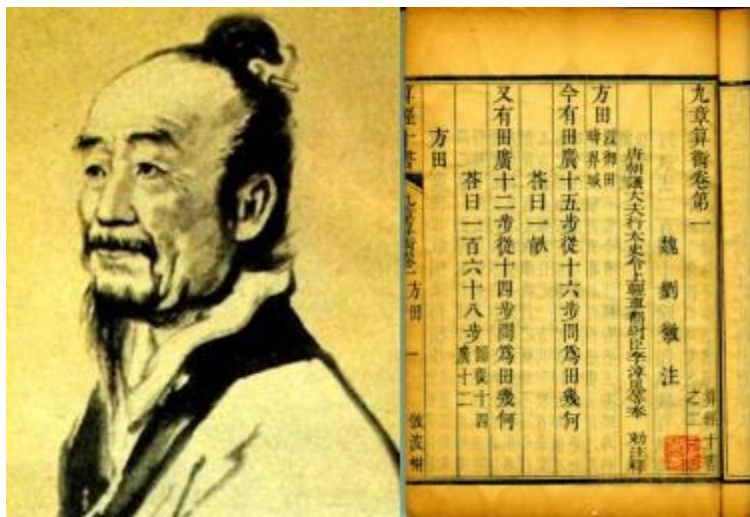 九章算術卷第一
算經十書
之二
魏劉徽注
唐朝議大夫行太史令上輕車都尉臣李淳風等奉 勑注釋
方田 以御田
疇界域
今有田廣十五步從十六步問為田幾何
荅曰一畝
又有田廣十二步從十四步問為田幾何
荅曰一百六十八步 圖從十四
廣十二
方田
算經十書
九章算術卷一 方田
一
微波榭